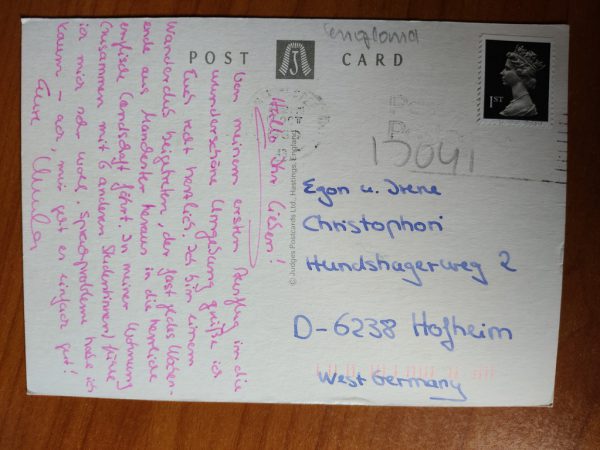 England
POST CARD
1ST
15041
© Judges Postcards Ltd, Hastings England
Hallo Ihr Lieben!
Von meinem ersten Ausflug in die
wunderschöne Umgebung grüße ich
Euch recht herzlich. Ich bin einem
Wanderclub beigetreten, der fast jedes Wochen-
ende aus Manchester heraus in die herrliche
englische Landschaft fährt. In meiner Wohnung
(zusammen mit 6 anderen Studentinnen) fühle
ich mich sehr wohl. Sprachprobleme habe ich
kaum – ach, mir geht es einfach gut!
Eure
Egon u. Irene
Christophori
Hundshagerweg 2
D-6238 Hofheim
West Germany